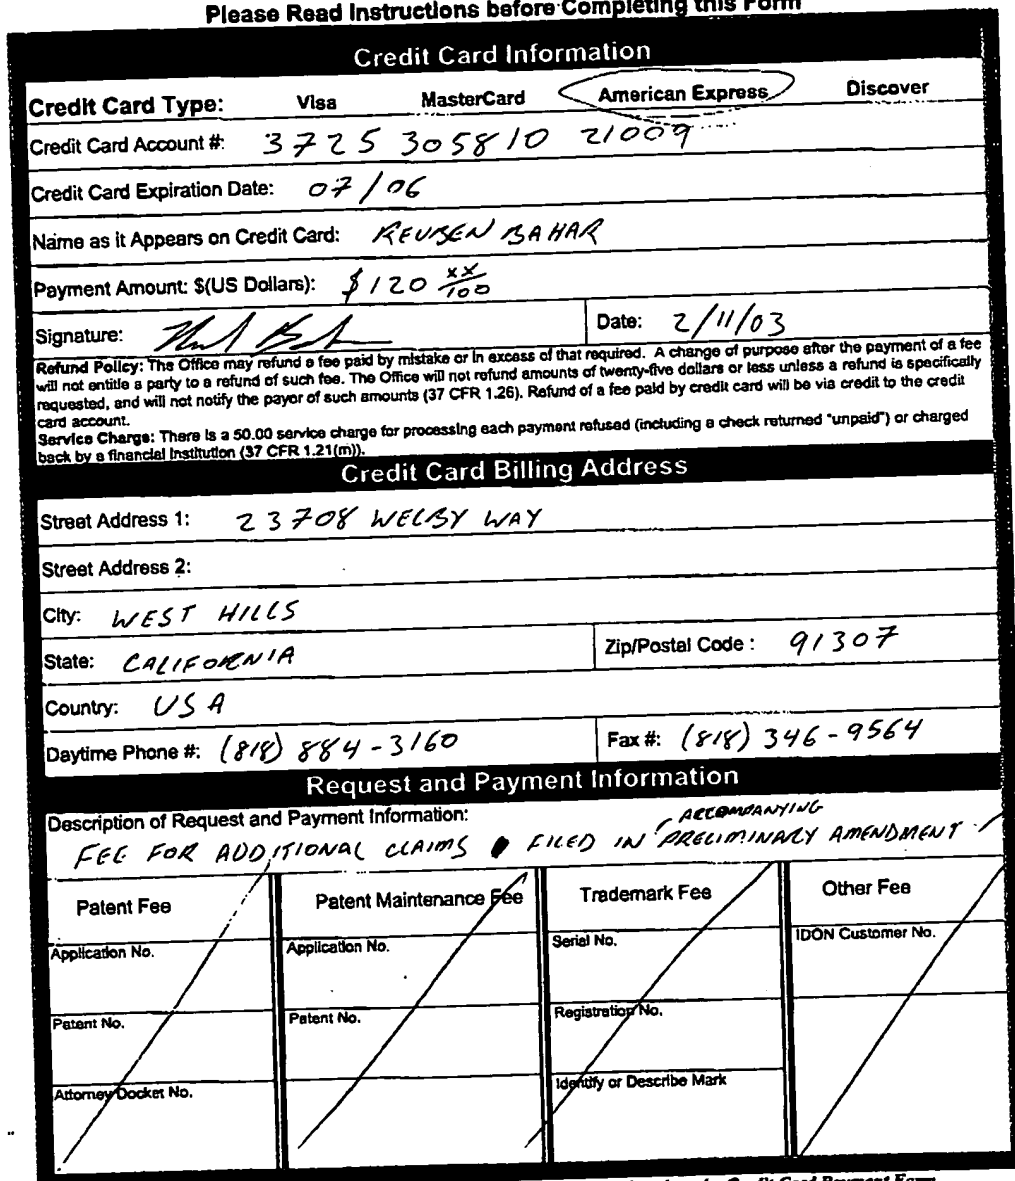 Please Read Instructions before Completing this Form
Credit Card Information
Credit Card Type: Visa MasterCard American Express Discover
Credit Card Account #: 3725 305810 21009
Credit Card Expiration Date: 07/06
Name as it Appears on Credit Card: REUBEN BAHAR
Payment Amount: $(US Dollars): $120 xx/100
Signature: Date: 2/11/03
Refund Policy: The Office may refund a fee paid by mistake or in excess of that required. A change of purpose after the payment of a fee
will not entitle a party to a refund of such fee. The Office will not refund amounts of twenty-five dollars or less unless a refund is specifically
requested, and will not notify the payor of such amounts (37 CFR 1.26). Refund of a fee paid by credit card will be via credit to the credit
card account.
Service Charge: There is a 50.00 service charge for processing each payment refused (including a check returned "unpaid") or charged
back by a financial institution (37 CFR 1.21(m)).
Credit Card Billing Address
Street Address 1: 23708 WELBY WAY
Street Address 2:
City: WEST HILLS
State: CALIFORNIA Zip/Postal Code : 91307
Country: USA
Daytime Phone #: (818) 884-3160 Fax #: (818) 346-9564
Request and Payment Information
Description of Request and Payment Information:
ACCOMPANYING
FEE FOR ADDITIONAL CLAIMS FILED IN PRELIMINARY AMENDMENT
Patent Fee Patent Maintenance Fee Trademark Fee Other Fee
Application No. Application No. Serial No. IDON Customer No.
Patent No. Patent No. Registration No.
Attorney Docket No. Identify or Describe Mark
Credit Card Payment Form